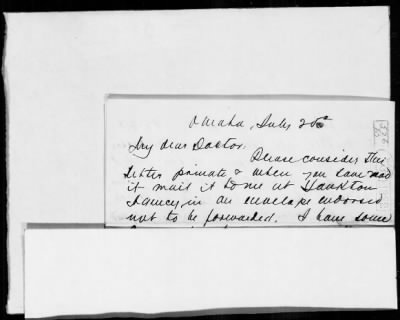 Omaha, July 20
My dear Doctor.
Please consider this
letter private & when you have read
it mail it to me at Yankton
Agency, in an envelope endorsed
not to be forwarded. I have some